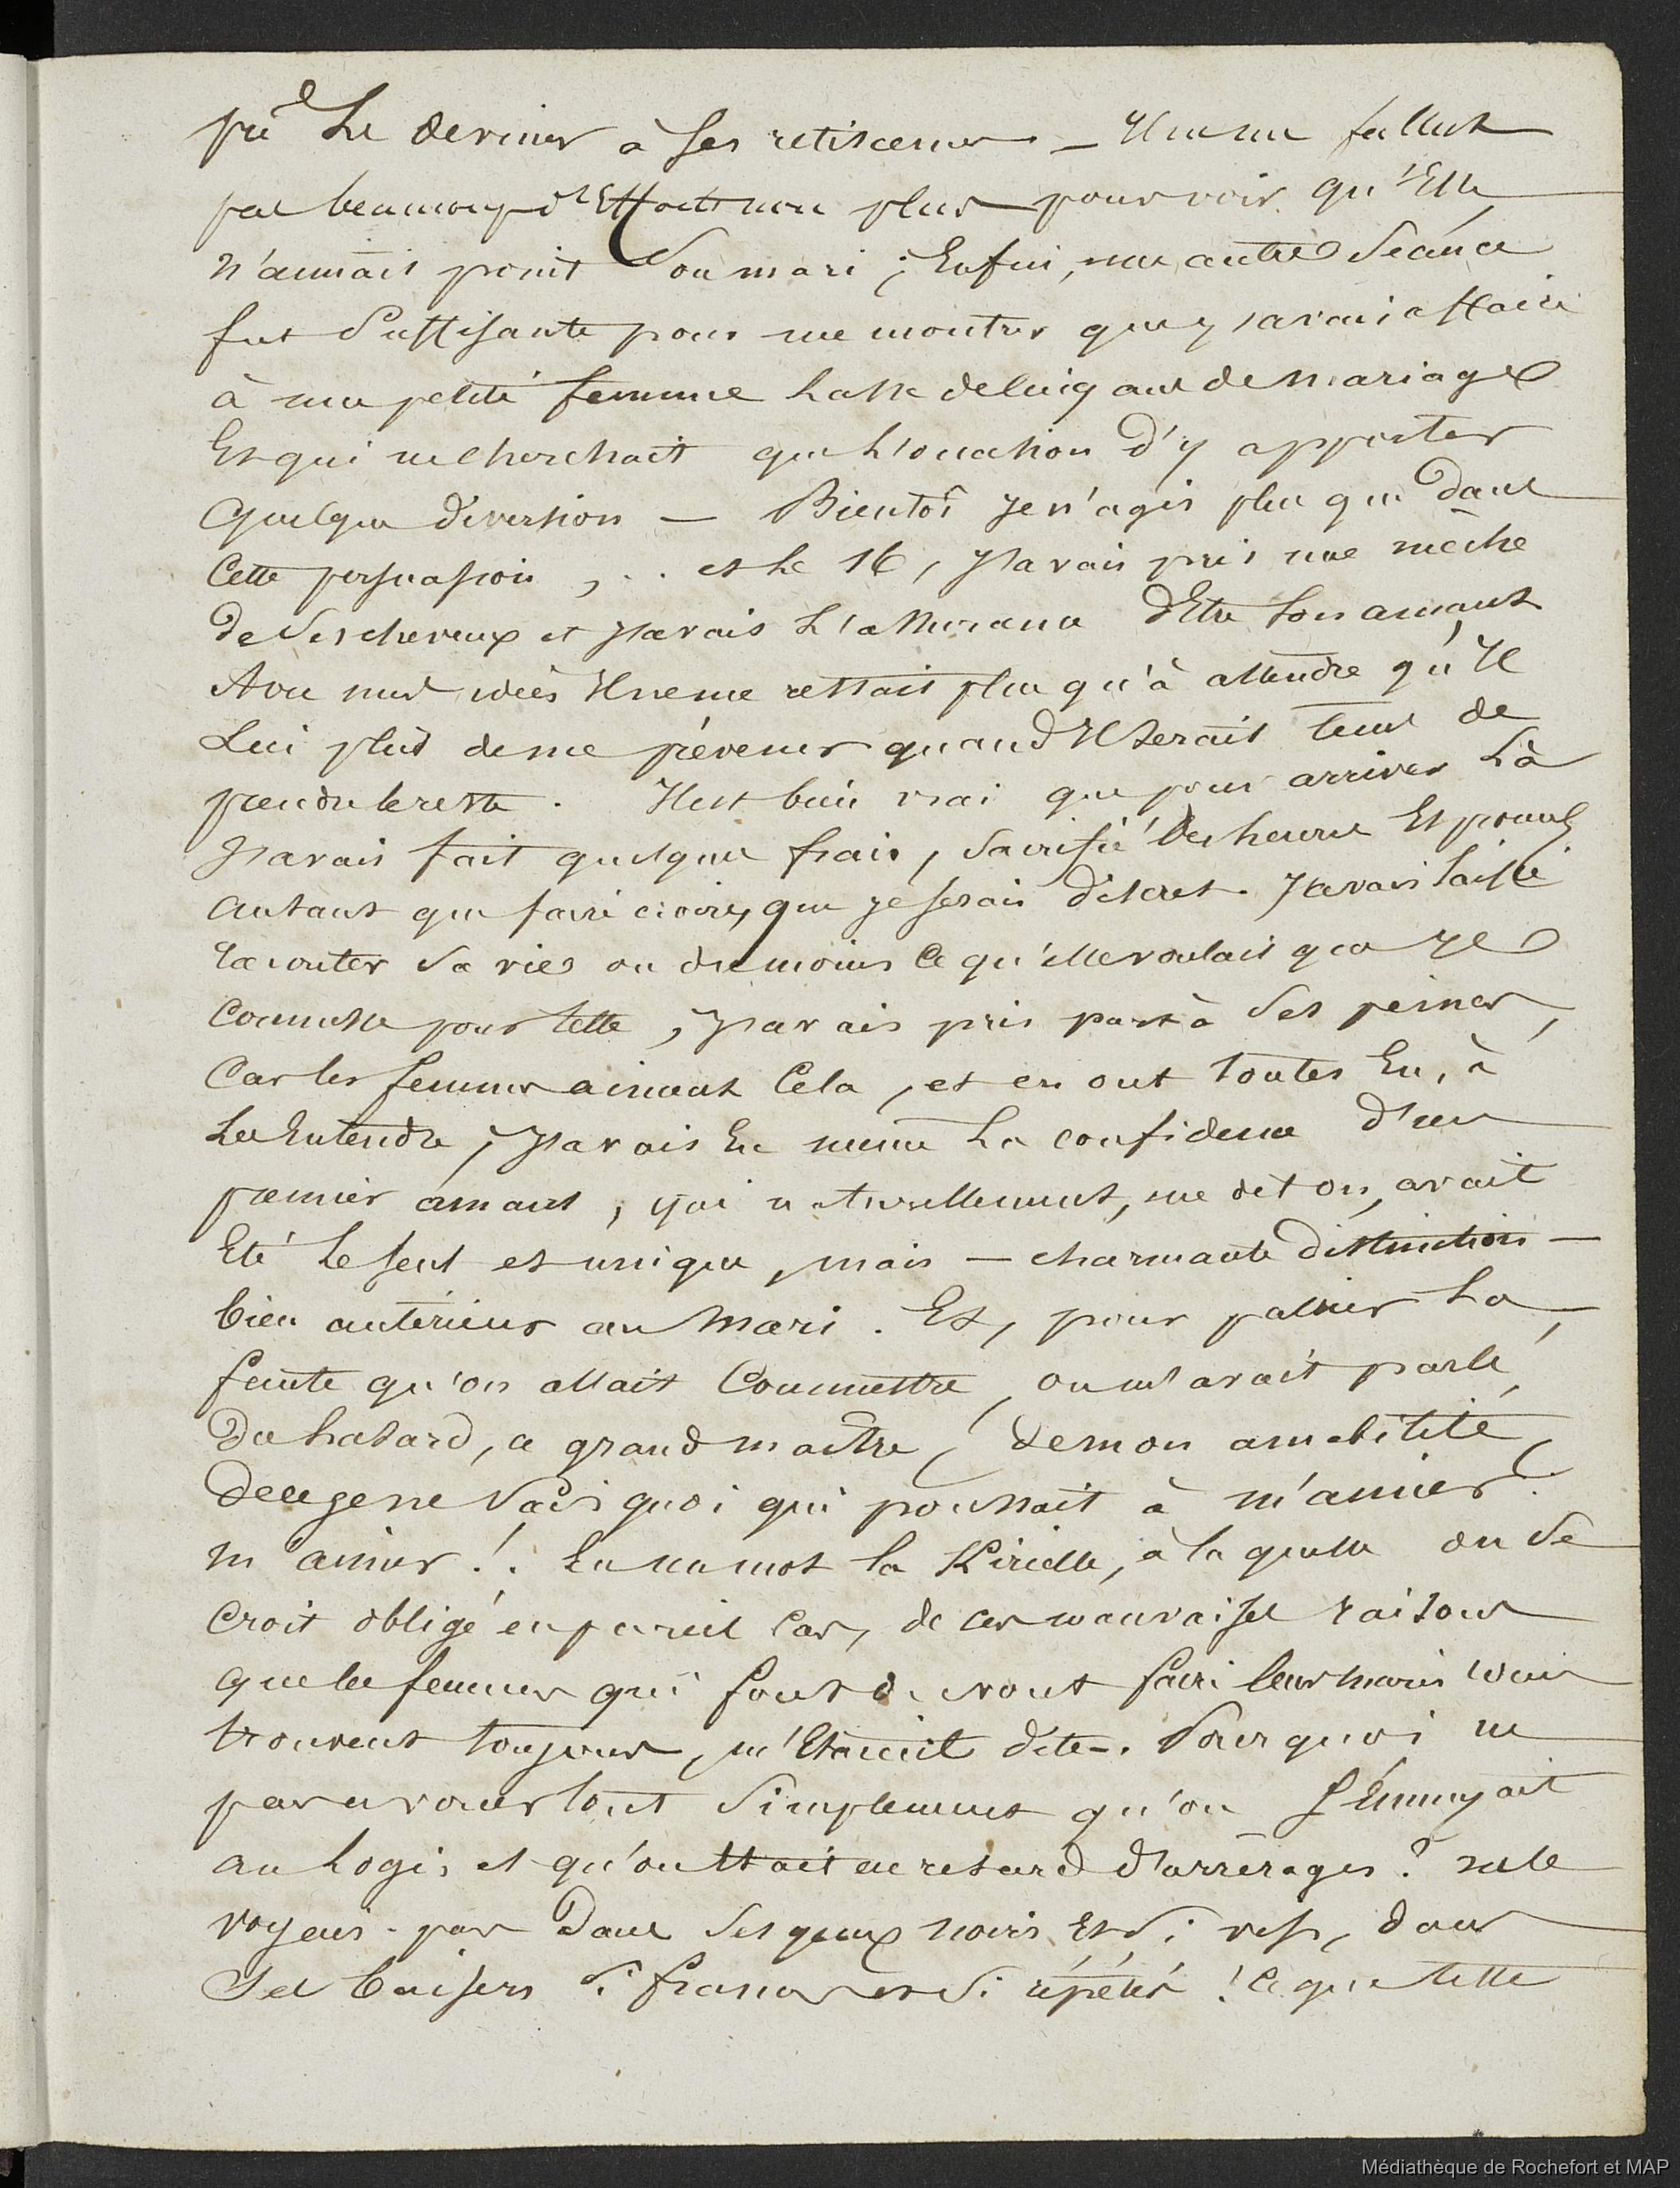 pu le deviner à ses retiscences — Il ne me fallut
pas beaucoup d'Efforts non plus pour voir qu'Elle
n'aimait point son mari ; Enfin, une autre séance
fut suffisante pour me montrer que j'avais affaire
à une petite femme lasse de cinq ans de mariage
Et qui ne cherchait que l'occasion d'y apporter
quelque diversion — Bientôt je n'agis plus que dans
cette persuasion , . . et le 16, j'avais pris une mèche
de ses cheveux et j'avais l'assurance d'Etre son amant
A vue mes idées Il ne me restait plus qu'à attendre qu'Il
Lui plut de me prévenir quand Il serait tems de
prendre le reste . Il est bien vrai que pour arriver là
j'avais fait quelques frais, sacrifié des heures Et prouvé
autant que faire croire, que je serais discret. J'avais laissé
raconter sa vie ou du moins ce qu'elle voulait que je
connusse pour telle , j'avais pris part à ses peines,
Car les femmes aiment cela , et en ont toutes Eu, à
les Entendre ; j'avais Eu même la confidence d'un
premier amant , qui naturellement, me dit on, avait
Eté le seul et unique , mais — charmante distinction —
bien antérieur au Mari . Et, pour pallier la
faute qu'on allait Commettre, on m'avait parlé
Du hasard, ce grand maître, de mon amabilité,
de ce je ne sais quoi qui poussait à m'aimer .
m'aimer !. En un mot la Kirielle, à laquelle on se
croit obligé en pareil cas, de ces mauvaises raisons
que les femmes qui font ou vont faire leurs maris
trouvent toujours, m'Etait dite. Pourquoi ne
pas avouer tout simplement qu'on s'Ennuyait
au logis et qu'on Etait en retard d'arrérages ? ne le
voyais-je pas Dans ses yeux noirs Et si vifs, dans
Ses baisers si francs et si répétés ! Ce que cette